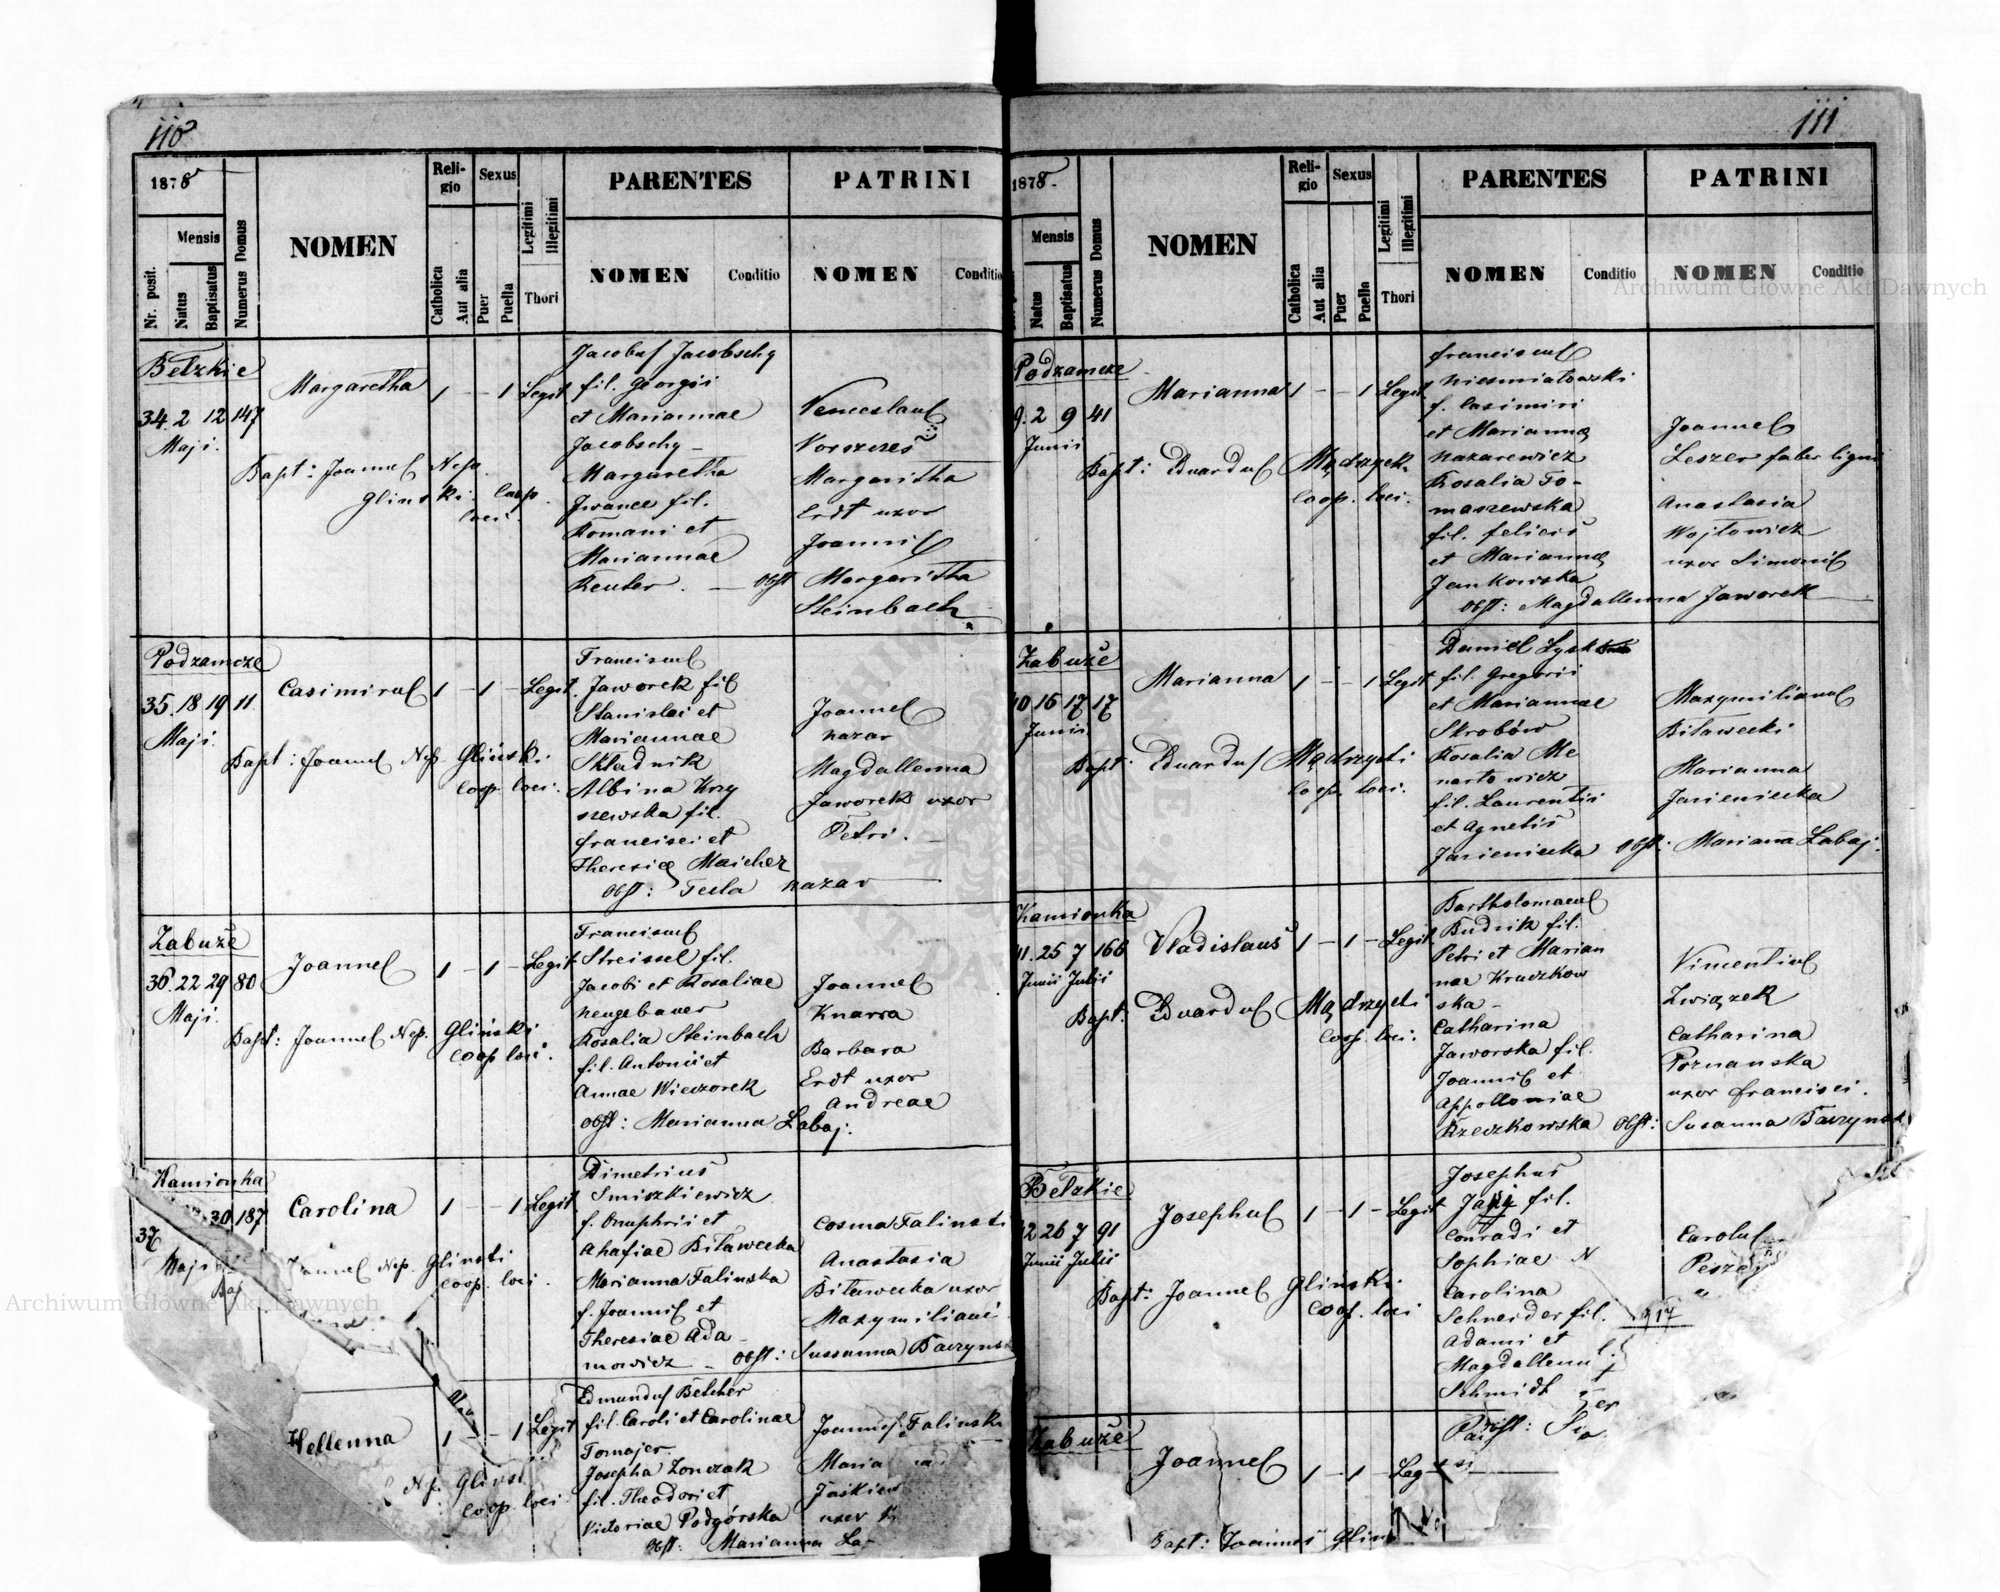 110
1878
Mensis
Nr. posit.
Natus
Baptisatus
Numerus Domus
NOMEN
Religio
Catholica
Aut alia
Sexus
Puer
Puella
Legitimi
Illegitimi
Thori
PARENTES
NOMEN
Conditio
PATRINI
NOMEN
Conditio
Betzkie
34. 2 12 147
Maji.
Margaretha
1 - - 1 Legit
Bapt: Joannes Nep.
Glinski Coop.
loci.
Jacobus Jacobschy
fil. Georgii
et Mariannae
Jacobschy
Margaretha
Iwance fil.
Romani et
Mariannae
Reuter. — Obst
Venceslaus
Margaritha
Erdt uxor
Joannis
Margaritha
Steinbach
Podzamcze
35. 18 19 11
Maji.
Casimirus
1 - 1 - Legit.
Bapt: Joannes Nep. Glinski
Coop. loci.
Franciscus
Jaworek fil
Stanislai et
Mariannae
Składnik
Albina Krzy
szewska fil.
Francisci et
Theresiae Maicher
Obst: Tecla Nazar
Joannes
Nazar
Magdallenna
Jaworek uxor
Petri.
Zabuże
36. 22 29 80
Maji.
Joannes
1 - 1 - Legit.
Bapt: Joannes Nep. Glinski
Coop loci.
Franciscus
Streissel fil.
Jacobi et Rosaliae
Neugebauer
Rosalia Steinbach
fil. Antonii et
Annae Wieczorek
Obst: Marianna Łabaj.
Joannes
Knarra
Barbara
Erdt uxor
Andreae
Kamionka
30 187
37
Maji
Carolina
1 - - 1 Legit.
Bap
Joannes Nep. Glinski
Coop. loci.
Dimetrius
Smiszkiewicz
f. Onuphrii et
Ahafiae Biławecka
Marianna Falinska
f. Joannis et
Theresiae Ada
mowicz - Obst: Sussanna Baczyns
Cosma Falinski
Anastasia
Biławecka uxor
Maxymiliani
Hellenna
1 - - 1 Legit
Nep. Glinst
Coop. loci
Edmundus Betcher
fil. Caroli et Carolinae
Tomajer
Josepha Zonczak
fil. Theodori et
Victoriae Podgórska
Obst: Marianna La
Joannes Falinski
Maria
Jaskiew
uxor
111
1878.
Mensis
Natus
Baptisatus
Numerus Domus
NOMEN
Religio
Catholica
Aut alia
Sexus
Puer
Puella
Legitimi
Illegitimi
Thori
PARENTES
NOMEN
Conditio
PATRINI
NOMEN
Conditio
Podzamcze
9. 2 9 41
Junii
Marianna
1 - - 1 Legit.
Bapt: Eduardus Mądrzyck
Coop. loci.
Franciscus
Niesmiatowski
f. Casimiri
et Mariannae
Nazarewicz
Rosalia To-
maszewska
fil. Felicis
et Mariannae
Jankowska
Obst: Magdallenna Jaworek
Joannes
Leszer faber ligni
Anastasia
Wojtowicz
uxor Simonis
Zabuże
10 16 17 17
Junii
Marianna
1 - - 1 Legit
Bapt: Eduardus Mądrzycki
Coop. loci.
Daniel Łysk
fil. Gregorii
et Mariannae
Skrobów
Rosalia Me
nartowicz
fil. Laurentii
et Agnetis
Jasieniecka Obst: Mariana Łabaj.
Maxymilianus
Biławecki
Marianna
Jasieniecka
Kamionka
11. 25 7 166
Junii Julii
Vladislaus
1 - 1 - Legit.
Bapt: Eduardus Mądrzycki
Coop. loci.
Bartholomaeus
Budnik fil.
Petri et Marian
nae Kruczkow
ska -
Catharina
Jaworska fil.
Joannis et
Appolloniae
Rzeczkowska Obst: Susanna Baczynsk
Vincentius
Związek
Catharina
Poznanska
uxor Francisci.
Betzkie
12 26 7 91
Junii Julii
Josephus
1 - 1 - Legit
Bapt: Joannes Glinski
Coop. loci
Josephus
fil.
Conradi et
Sophiae N
Carolina
Schneider fil.
Adami et
Magdallenna
Schmidt
Carolus
917
Zabuże
Joannes
1 - 1 - Leg
Bapt: Joannes Glins
Archiwum Główne Akt Dawnych
Archiwum Główne Akt Dawnych